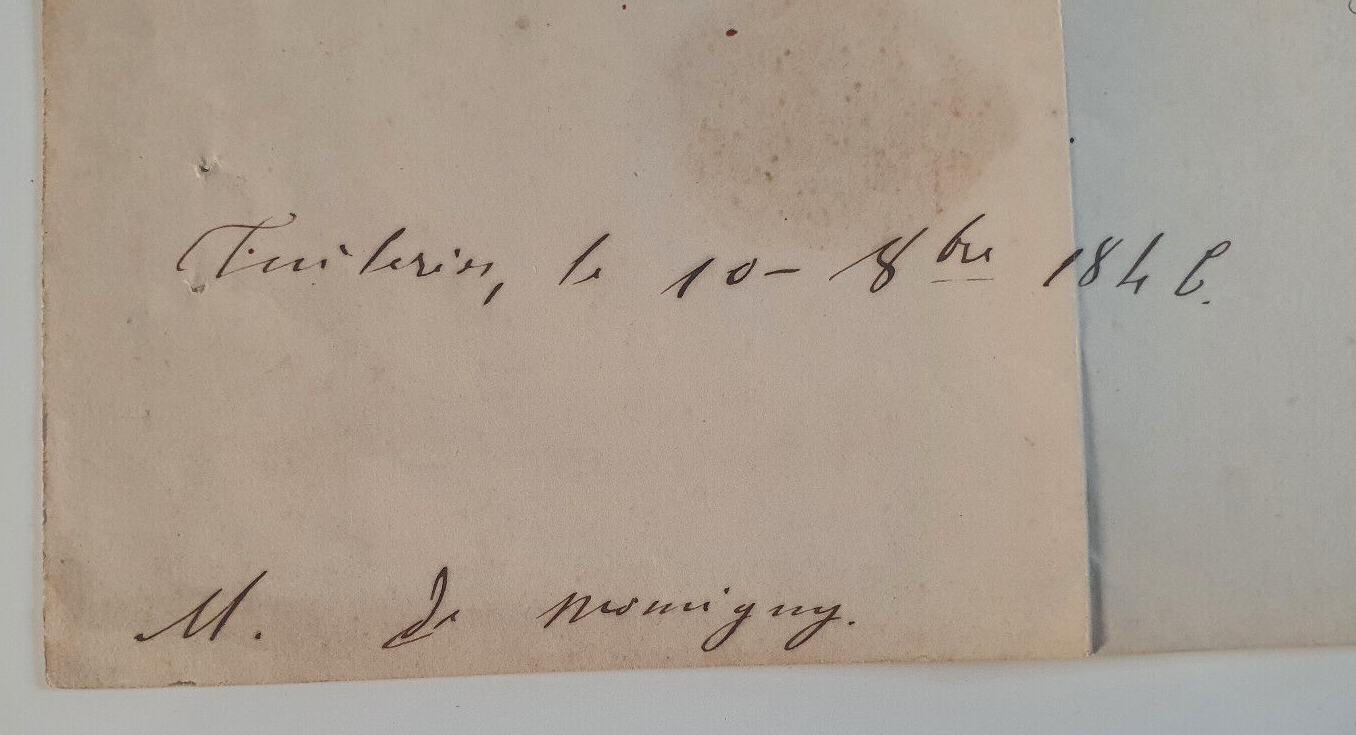 Tuileries, le 10 - 8bre 1846.
M. de Momigny.